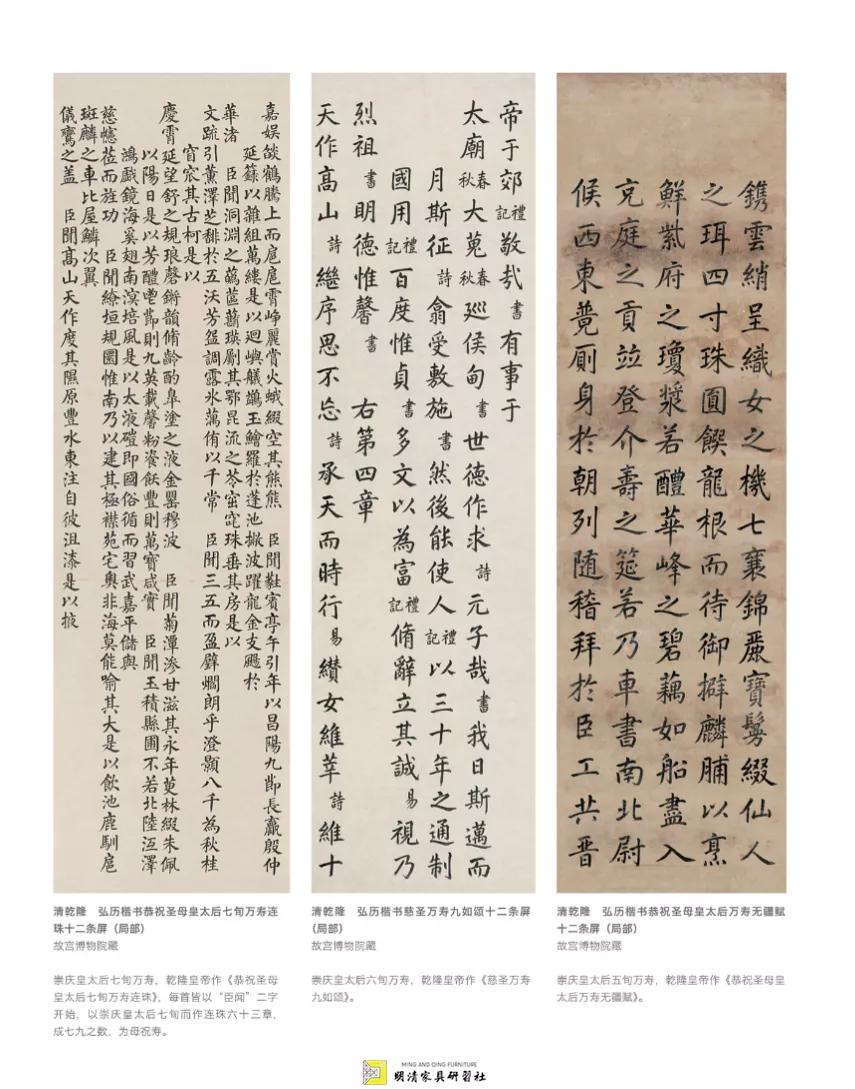 嘉娱燄鶴騰上而扈扈霄崢麗賞火蛾綴空其熊熊 臣聞蕤賓亭午引年以昌陽九節長贏殷仲
延籙以雜組萬縷是以迴嶼艤鷁玉鱠羅於蓬池撇波躍龍金支颺於
華渚 臣聞洞淵之藕 其鄂昆流之苓 珠垂其房是以
文疏引薰澤芝緋於五沃芳盌調露氷藕侑以千常 臣聞三五而盈 爛朗乎澄顥八千為秋桂
其古柯是以
慶霄延望舒之規琅磬鏘韻脩齡酌皐塗之液金罌穆波 臣聞菊潭滲甘滋其永年萸林綴朱佩
以陽日是以芳醴鬯節則九英載馨粉餈飫豐則萬寶咸實 臣聞玉積縣圃不若北陸沍澤
鴻戲鏡海奚翅南溟培風是以太液磑即國俗循而習武嘉平儲與
慈 莅而旌功 臣聞繚垣規園惟南乃以建其極襟苑宅奥非海莫能喻其大是以飲池鹿馴扈
斑麟之車比屋鱗次翼
儀鸞之蓋 臣聞髙山天作度其隰原豐水東注自彼沮漆是以掖
帝于郊禮記敬哉書有事于
太廟春秋大蒐春秋巡侯甸書世德作求詩元子哉書我日斯邁而
月斯征詩翕受敷施書然後能使人禮記以三十年之通制
國用禮記百度惟貞書多文以為富禮記脩辭立其誠易視乃
烈祖書明德惟馨書 右第四章
天作髙山詩繼序思不忘詩承天而時行易纘女維莘詩維十
鐫雲綃呈織女之機七襄錦麗寶鬘綴仙人
之珥四寸珠圓饌龍根而待御擗麟脯以烹
鮮紫府之瓊漿若醴華峰之碧藕如船盡入
充庭之貢並登介壽之筵若乃車書南北尉
候西東竟厠身於朝列随稽拜於臣工共晋
清乾隆 弘历楷书恭祝圣母皇太后七旬万寿连
珠十二条屏（局部）
故宫博物院藏
崇庆皇太后七旬万寿，乾隆皇帝作《恭祝圣母
皇太后七旬万寿连珠》，每首皆以“臣闻”二字
开始，以崇庆皇太后七旬而作连珠六十三章，
成七九之数，为母祝寿。
清乾隆 弘历楷书慈圣万寿九如颂十二条屏
（局部）
故宫博物院藏
崇庆皇太后六旬万寿，乾隆皇帝作《慈圣万寿
九如颂》。
清乾隆 弘历楷书恭祝圣母皇太后万寿无疆赋
十二条屏（局部）
故宫博物院藏
崇庆皇太后五旬万寿，乾隆皇帝作《恭祝圣母皇
太后万寿无疆赋》。
MING AND QING FURNITURE
明清家具研習社